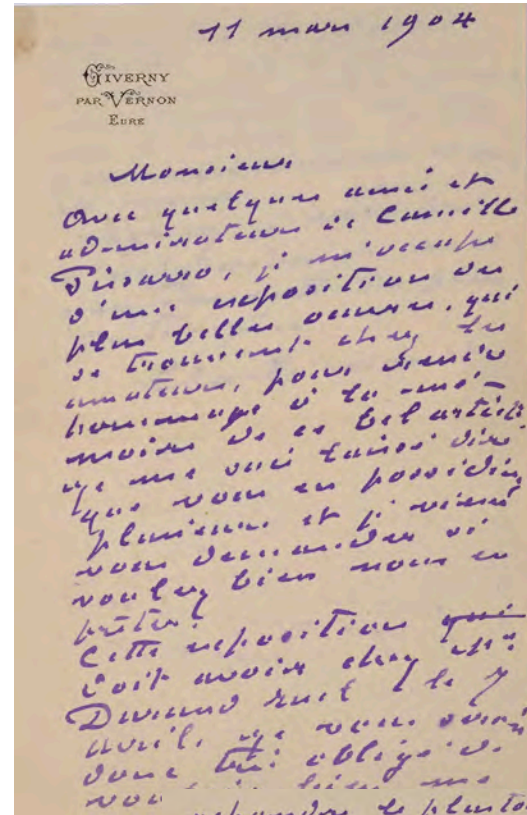 11 mars 1904
GIVERNY
PAR VERNON
EURE
Monsieur
Avec quelques amis et
admirateurs de Camille
Pissarro, je m'occupe
d'une exposition des
plus belles œuvres, qui
se trouvent chez les
amateurs, pour rendre
hommage à la mé-
moire de ce bel artiste.
je me suis laissé dire
que vous en possédiez
plusieurs et je viens
vous demander si
voulez bien nous en
prêter.
Cette exposition qui
doit avoir chez Mr
Durand Ruel le 7
avril, je vous serai
donc très obligé de
bien me
répondre le plusto